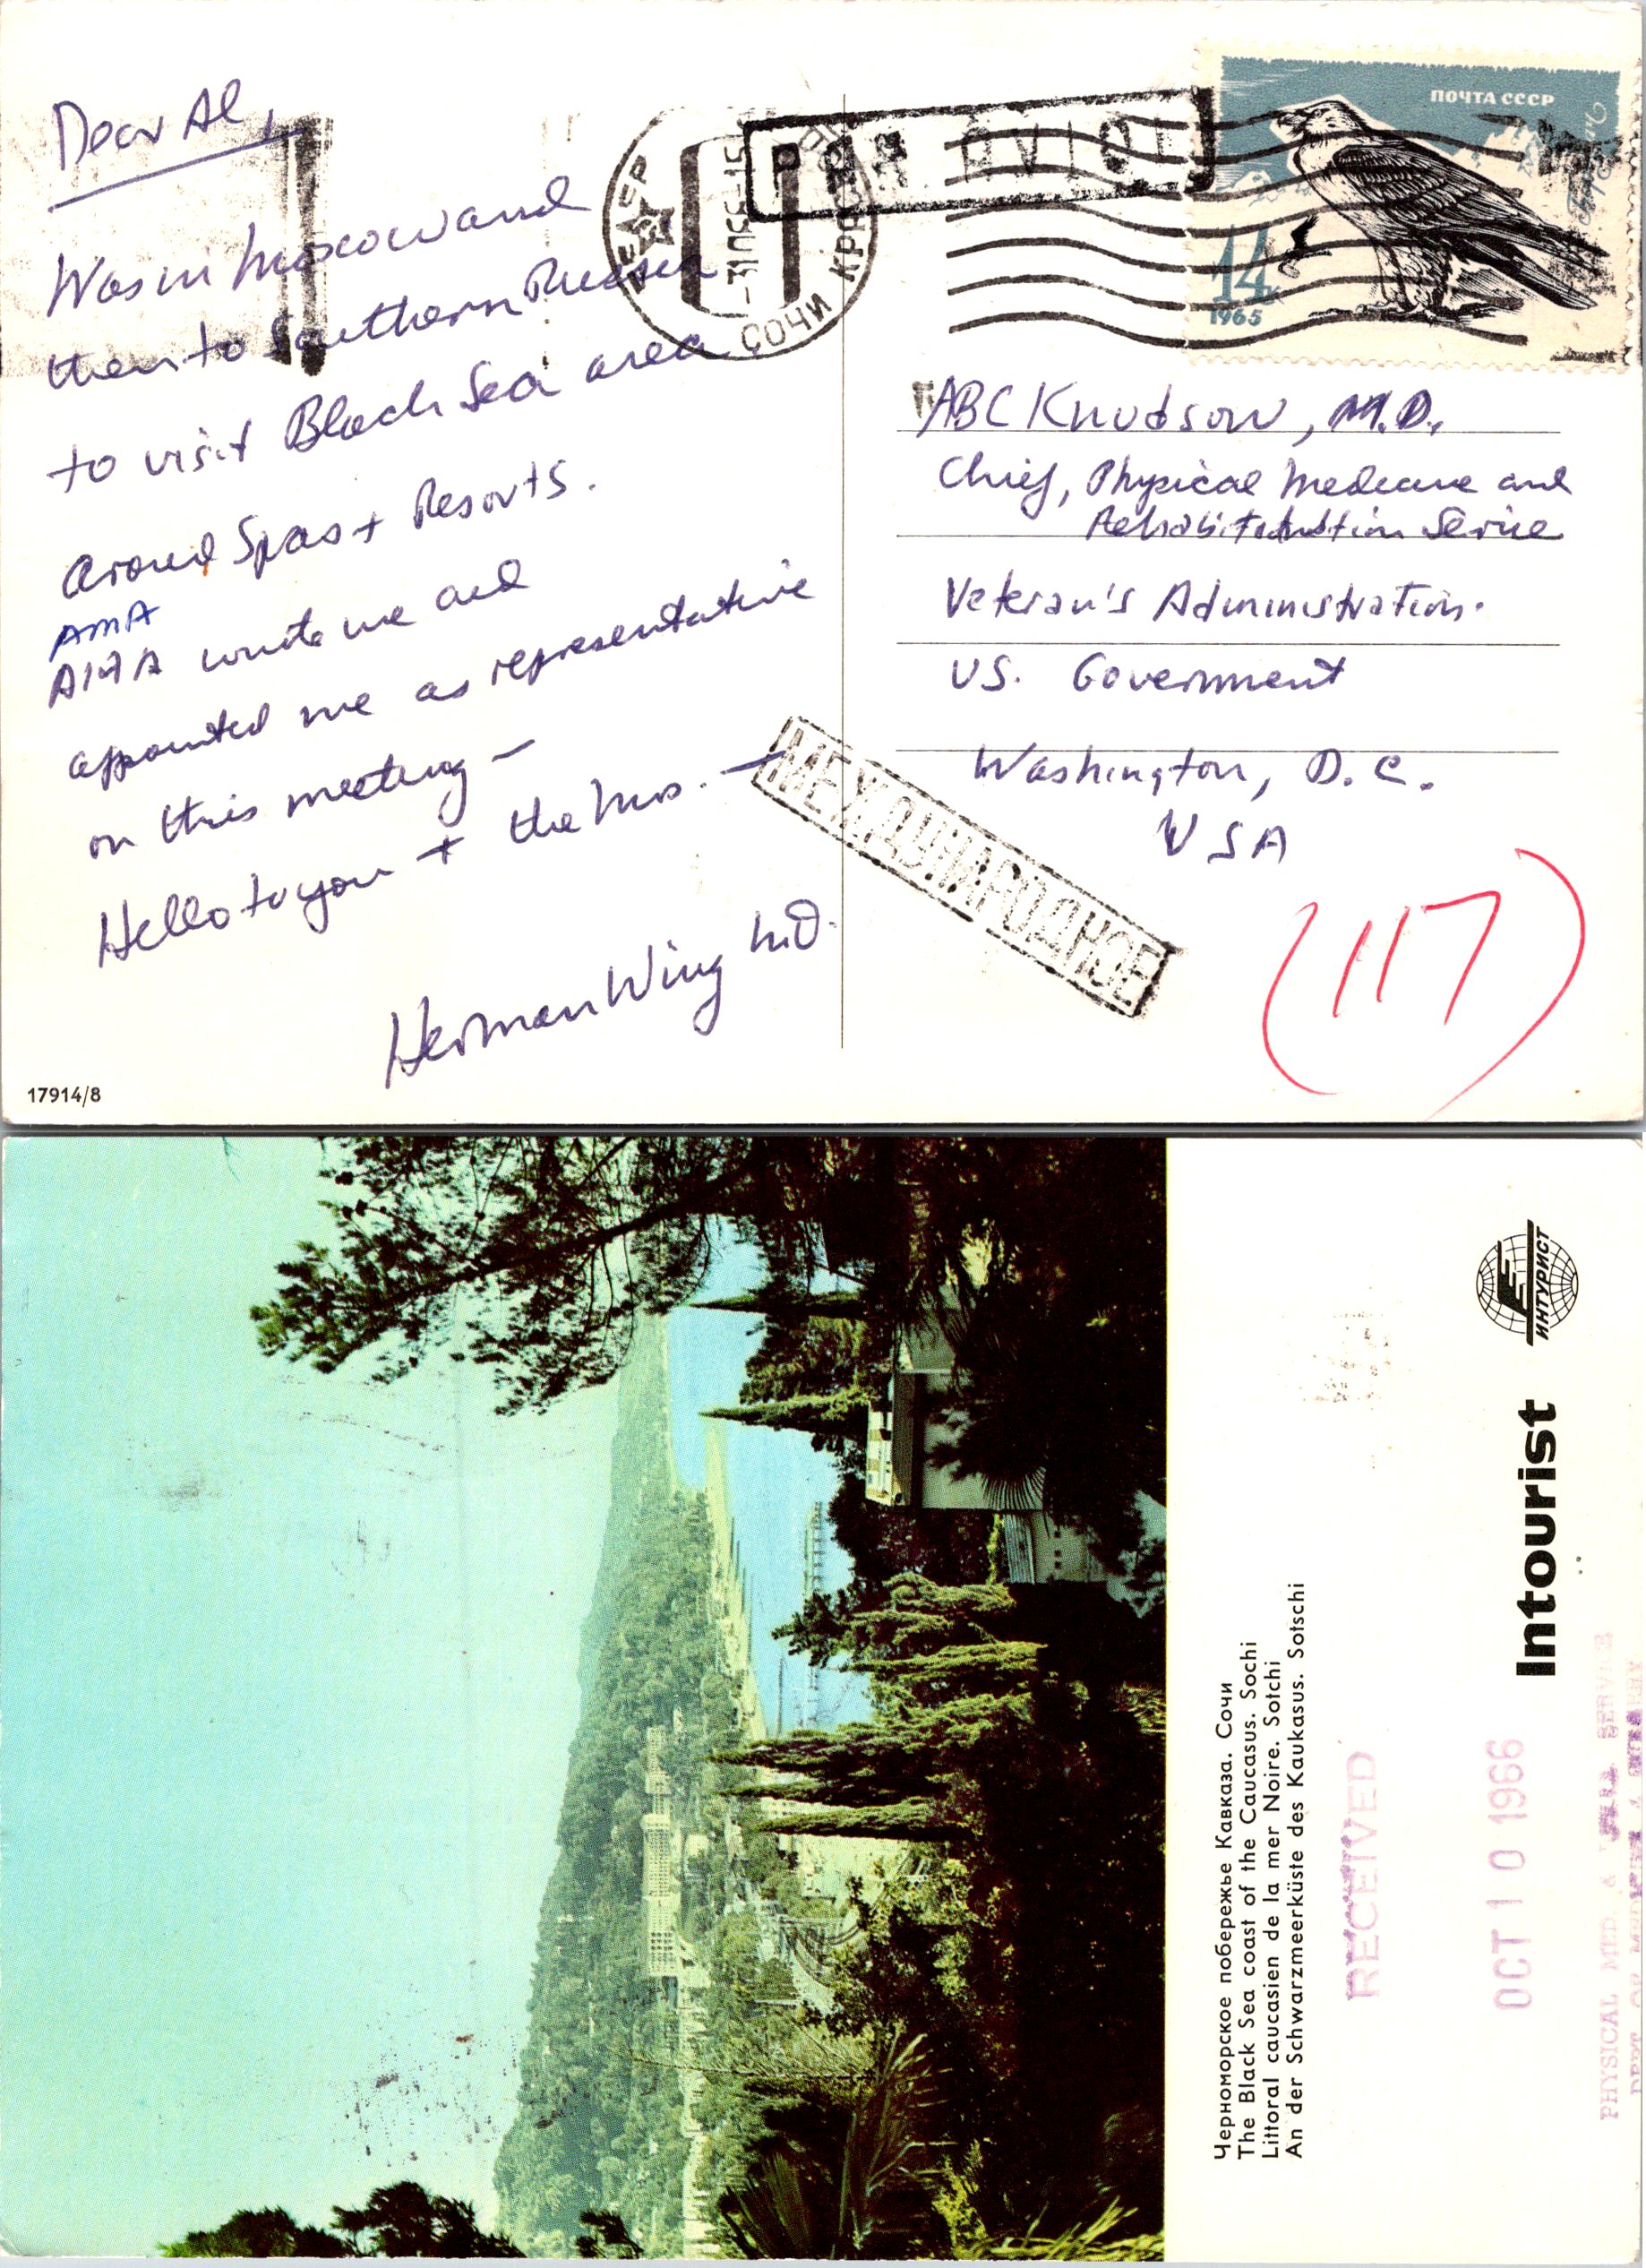 Dear Al,
Was in Moscow and
then to Southern Russia
to visit Black Sea area
around Spas + Resorts.
AMA
AMA wrote me and
appointed me as representative
on this meeting –
Hello to you + the Mrs. –
Herman Wing M.D.
17914/8
PAR AVION
СОЧИ
ПОЧТА СССР
14
1965
ABC Knudson, M.D.
Chief, Physical Medicine and
Rehabilitation Service
Veteran's Administration.
US. Government
Washington, D.C.
USA
МЕЖДУНАРОДНОЕ
(117)
Черноморское побережье Кавказа. Сочи
The Black Sea coast of the Caucasus. Sochi
Littoral caucasien de la mer Noire. Sotchi
An der Schwarzmeerküste des Kaukasus. Sotschi
RECEIVED
Intourist
ИНТУРИСТ
OCT 10 1966
PHYSICAL MED. &